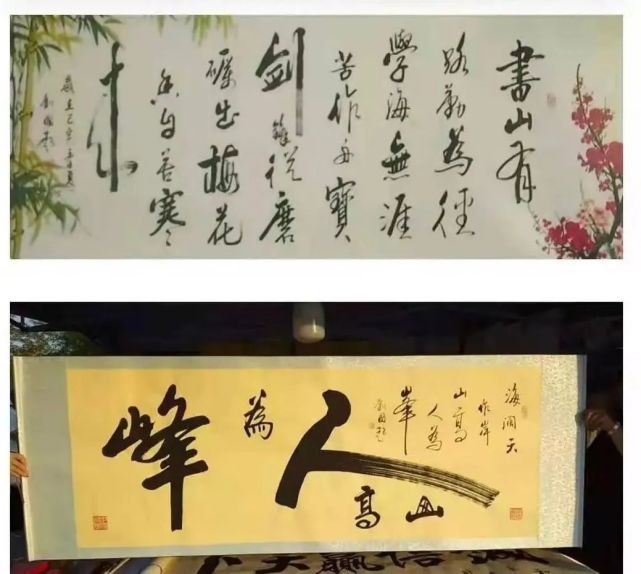 書山有
路勤為徑
學海無涯
苦作舟寶
劍鋒從磨
礪出梅花
香自苦寒
來
海闊天
作岸
山高
人為
峯
山高
人
為
峰
誠信贏天下